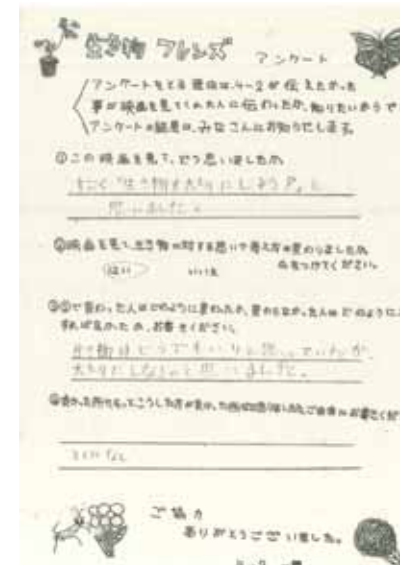 生き物 フレンズ アンケート
アンケートをとる理由は、4-2が伝えたかった
事が映画を見てくれた人に伝わったか、知りたいからで
アンケートの結果は、みなさんにお知らせします。
①この映画を見て、どう思いましたか
すごく「生き物を大切にしよう」と
思いました。
②映画を見て、生き物に対する思いや考え方は変わりましたか
はい いいえ ○をつけてください。
変わった人はどのように変わったか、変わらなかった人はどのように
すれば良かったか、お書きください。
生き物はどうでもいいと思っていたが、
大切にしないとと思いました。
とくになし
ご協力
ありがとうございました。